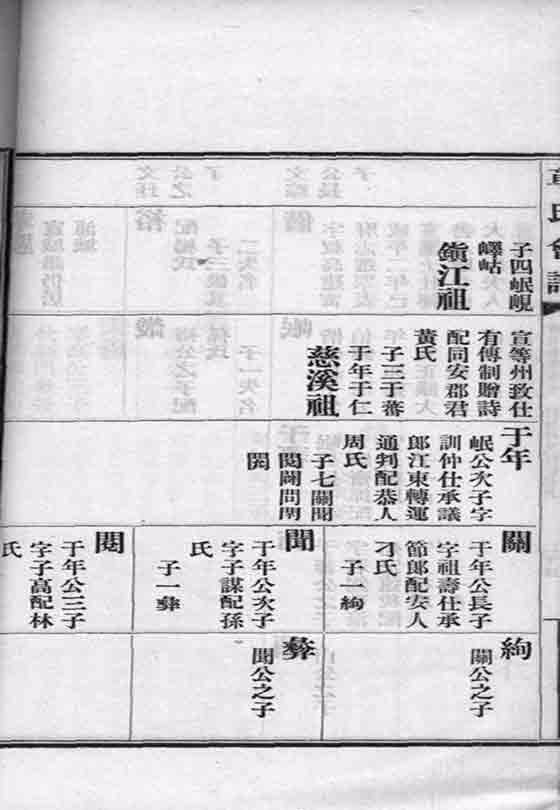 章氏會譜
子四岷峴
嶧岵
鎮江祖
宣等州致仕
有傅制贈詩
配同安郡君
黃氏
子三于蕃
于年于仁
慈溪祖
于年
岷公次子字
訓仲仕承議
郎江東轉運
通判配恭人
周氏
子七關聞
閱問
關
于年公長子
字祖壽仕承
節郎配安人
刁氏
子一絢
聞
于年公次子
字子謀配孫
氏
子一彝
閱
于年公三子
字子高配林
氏
絢
關公之子
彝
聞公之子